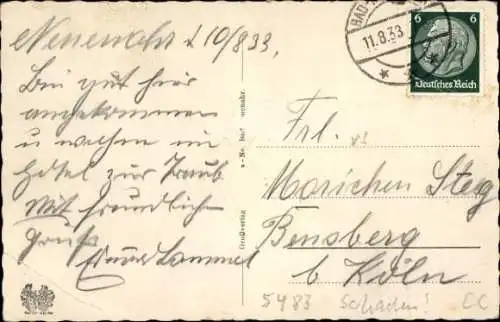 Neuenahr d 10/8 33,
Bin gut hier
angekommen
u wohnen im
Hotel zur Traube
Mit freundlichen
Gruß
Lammel
BAD
11.8.33
6 6
Deutsches Reich
Frl.
Marichen Steg
Bensberg
b Köln
5483 Schaden! CC